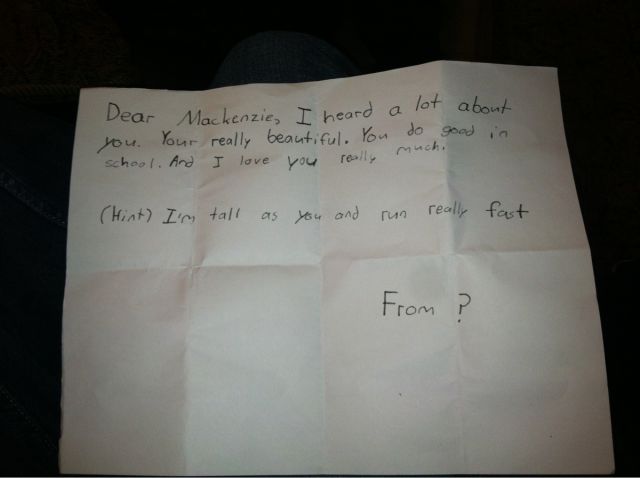 Dear Mackenzie, I heard a lot about
you. Your really beautiful. You do good in
school. And I love you really much.
(Hint) I'm tall as you and run really fast
From ?